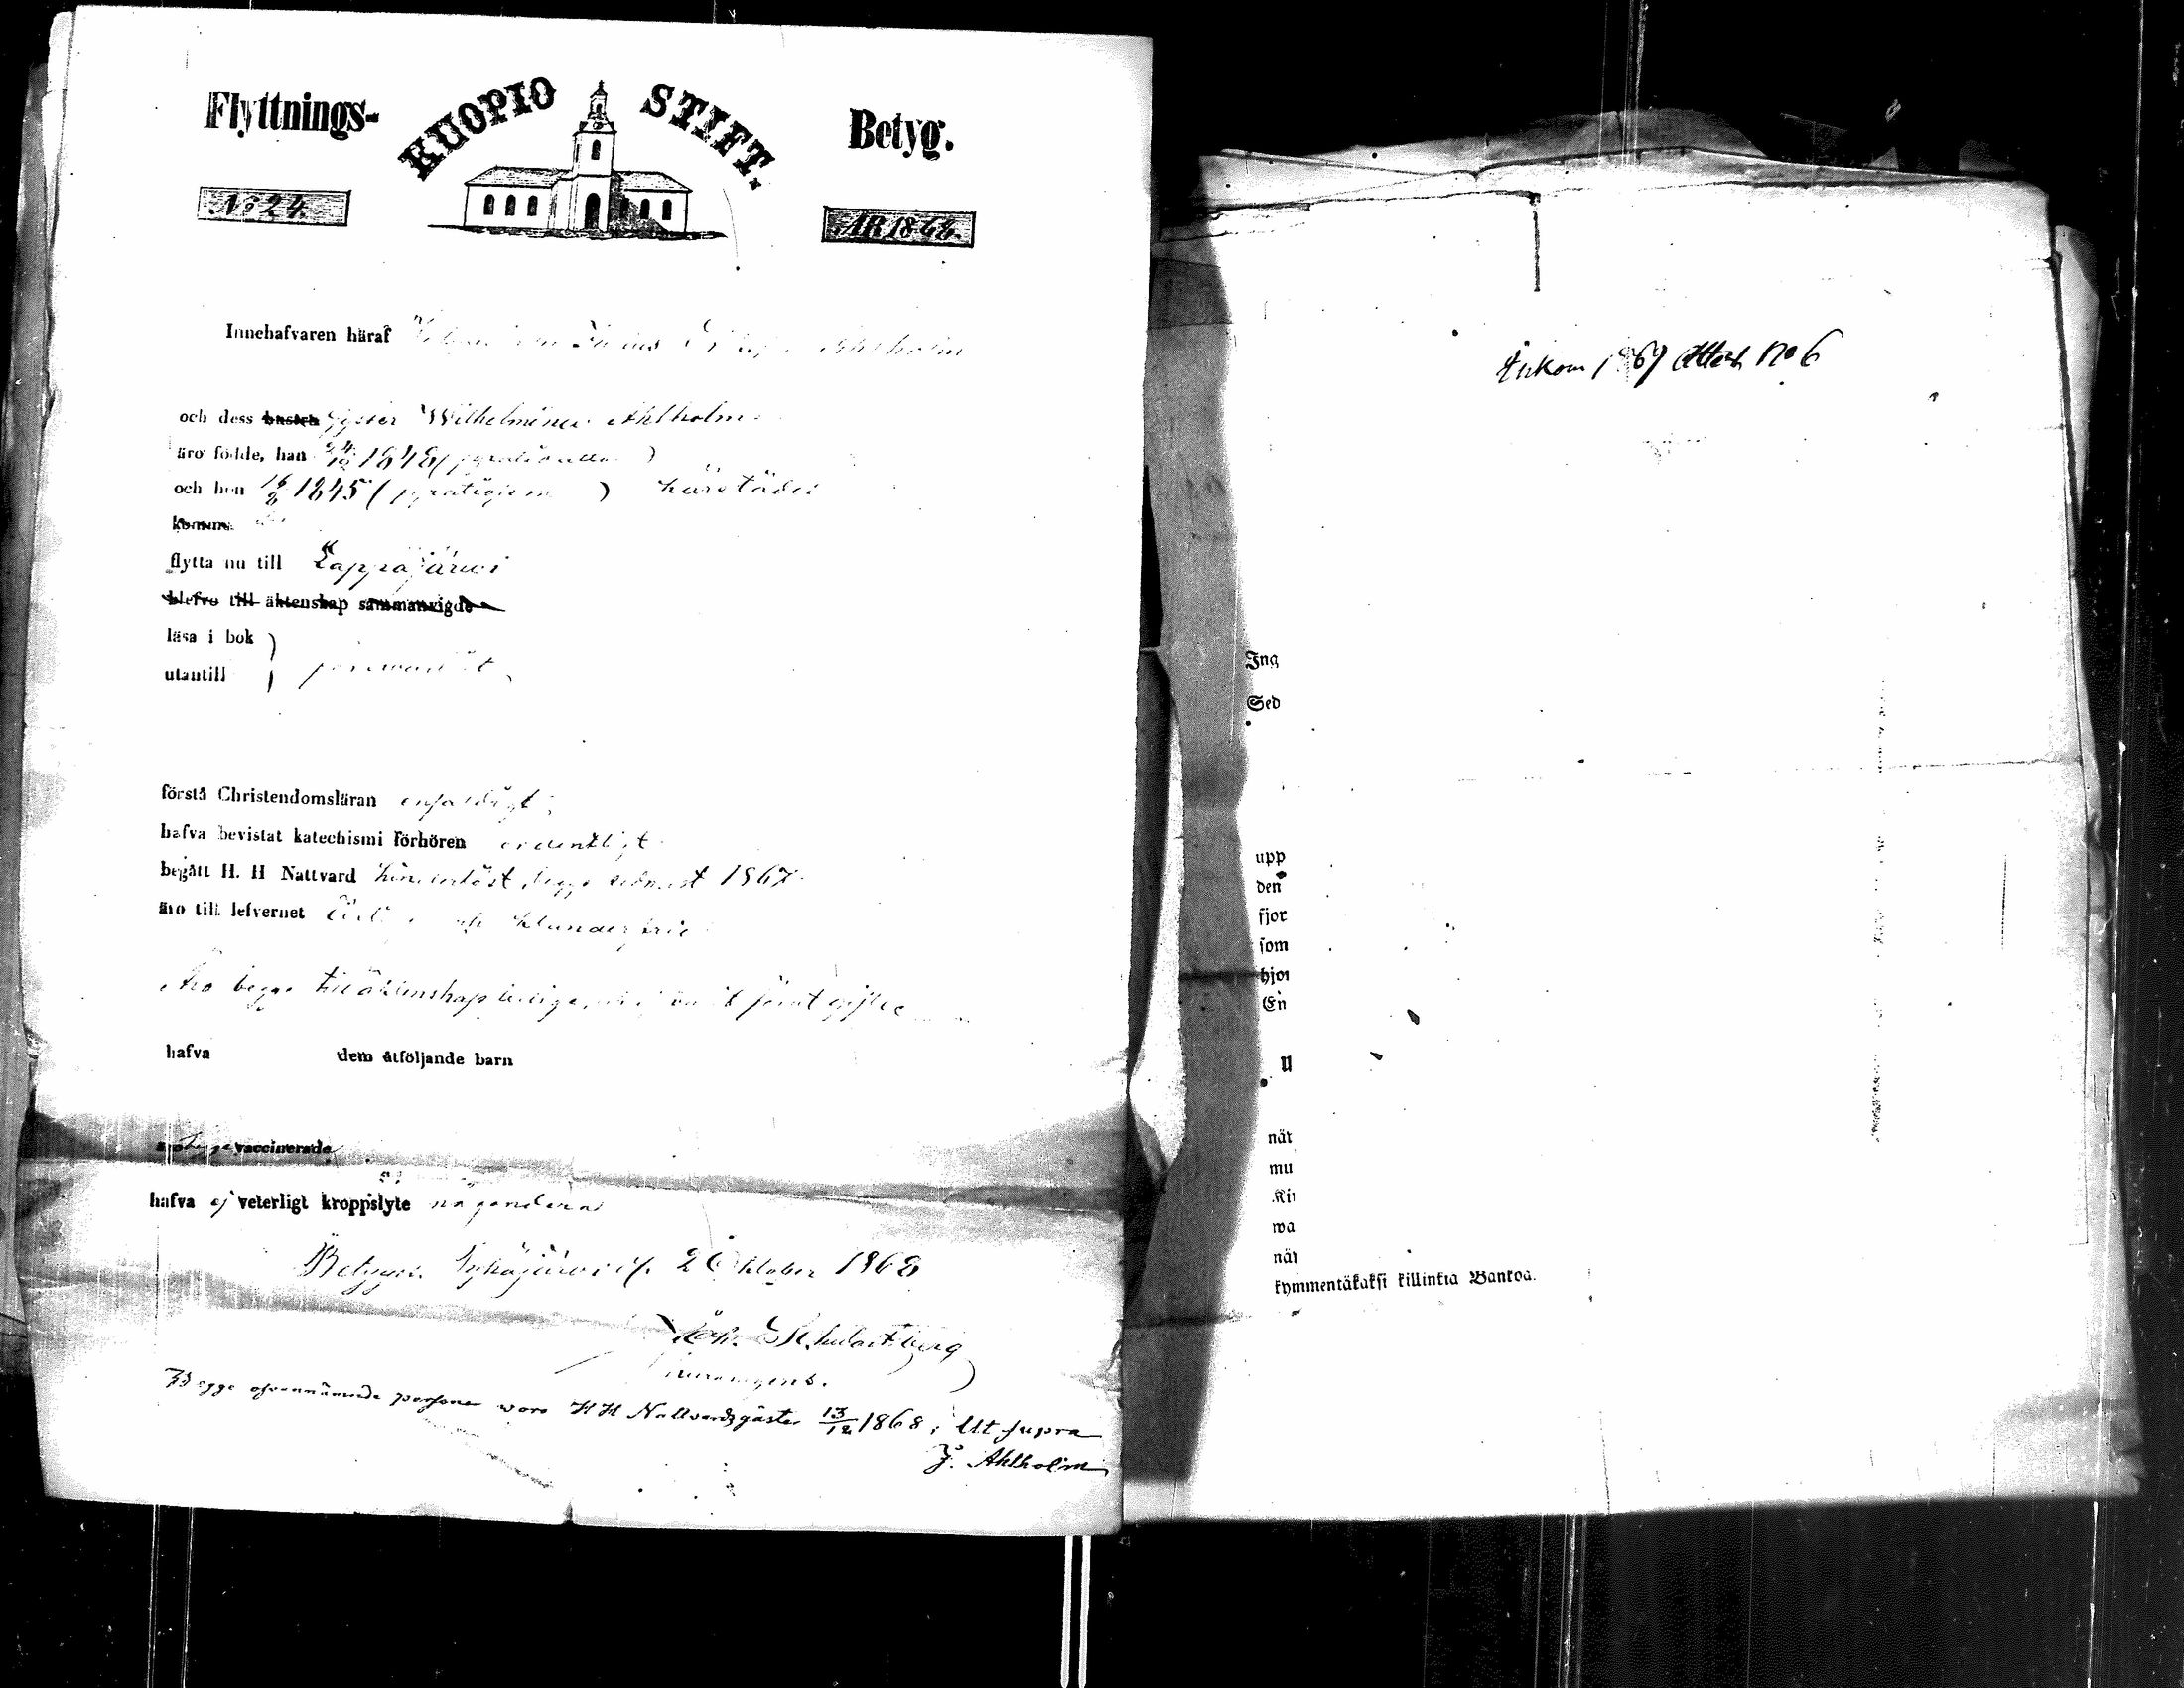 Flyttnings- KUOPIO STIFT. Betyg.
No 24. ÅR 1868.
Innehafvaren häraf Ahlholm
och dess hustru syster Wilhelmina Ahlholm
äro födde, han 24/12 1848 ( )
och hon 16/8 1845 ( ) härstädes
komne
flytta nu till Lappajärwi
blefvo till äktenskap sammanvigde
läsa i bok
utantill försvarligt
förstå Christendomsläran enfaldigt
hafva bevistat katechismi förhören ordentligt
begått H. H Nattvard hinderlöst, begge sednast 1867
äro till lefvernet och klanderfrie
Äro begge till äktenskap lediga, gifte
hafva dem åtföljande barn
äro begge vaccinerade
hafva ej veterligt kroppslyte någondera
Betygar. Pyhäjärwi d. 2 Oktober 1868
Joh.
Begge ofvannämnde personer woro HH Nattvardsgäster 13/12 1868; Ut supra
J. Ahlholm
Inkom 1869 Attest No 6
Ing
Sed
upp
den
fjor
som
hjor
En
U
när
mu
Kir
wa
när
kymmentäkaksi killinkiä Bankoa.